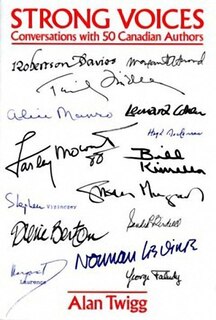 STRONG VOICES
Conversations with 50 Canadian Authors
Robertson Davies Margaret Atwood
Alice Munro Leonard Cohen
Hugh
Farley Mowat Bill
Kinsella
Stephen Vizinczey
Pierre Berton
Norman Levine
Margaret
Laurence George Faludy
Alan Twigg